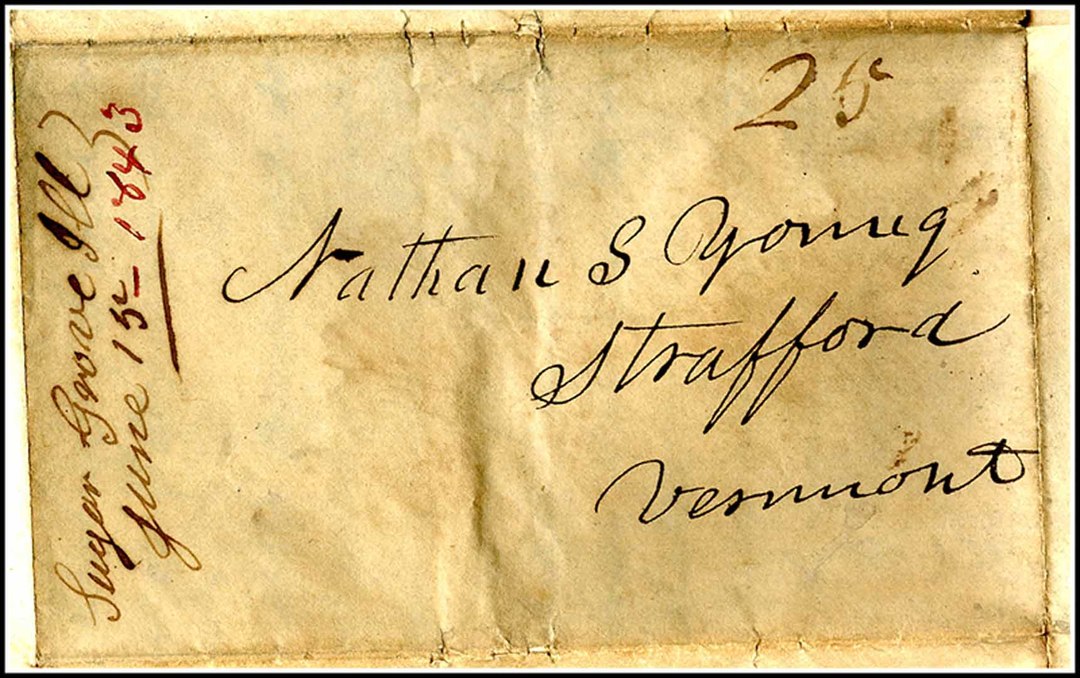 25
Nathan S Young
Strafford
Vermont
Sugar Grove Ill
June 15 - 1843